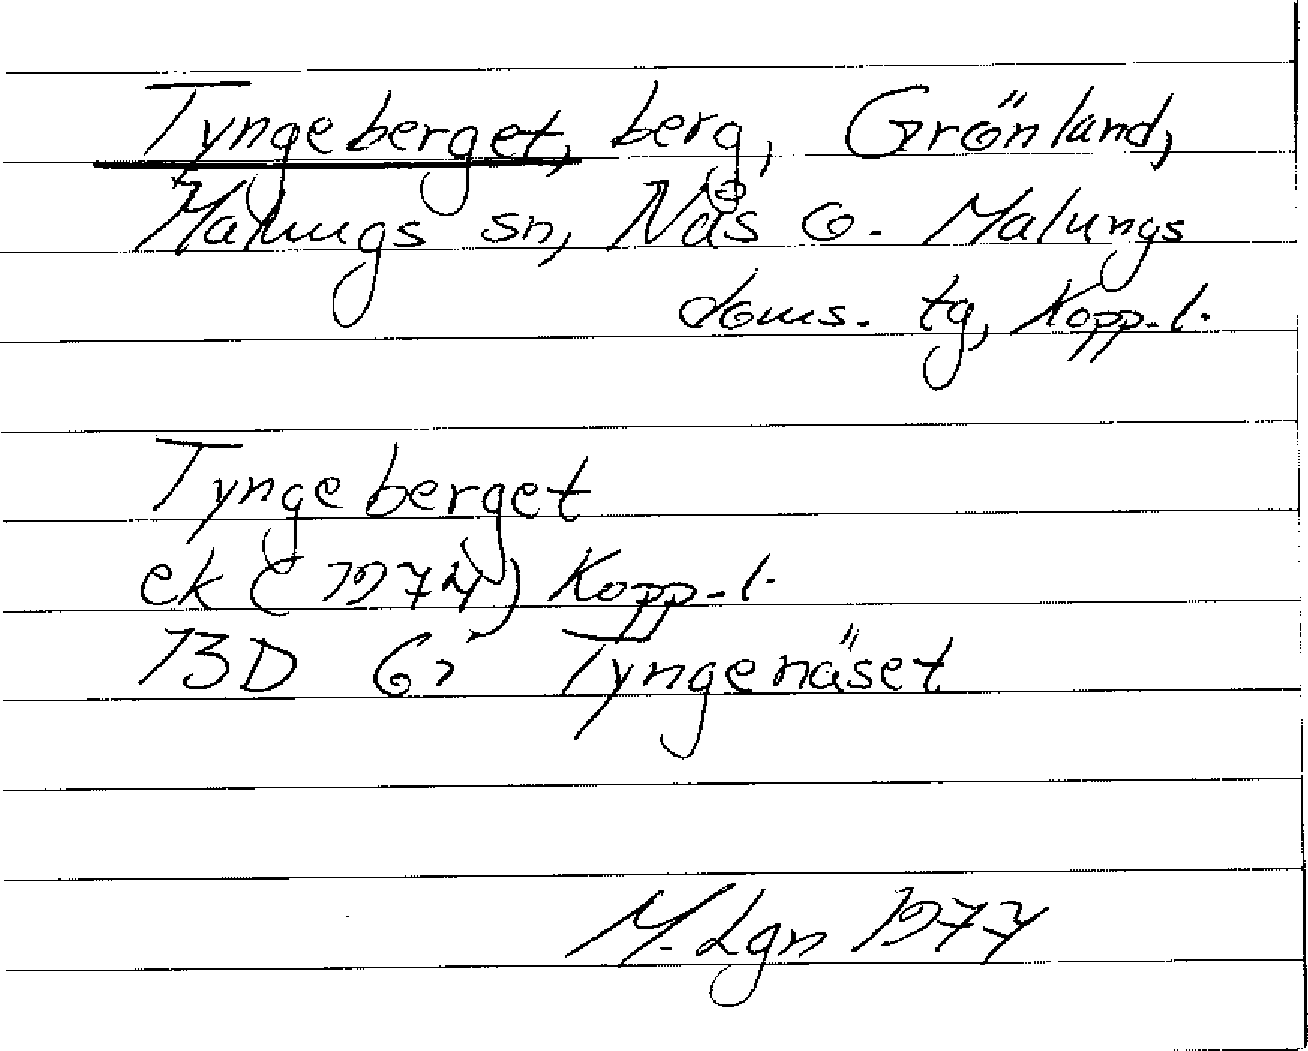 Tyngeberget, berg, Grönland,
Malungs sn, Nås o. Malungs
doms. tg, Kopp. l.
Tyngeberget
ek (1974) Kopp. l.
13D Gi Tyngenäset
M. Lgn 1977